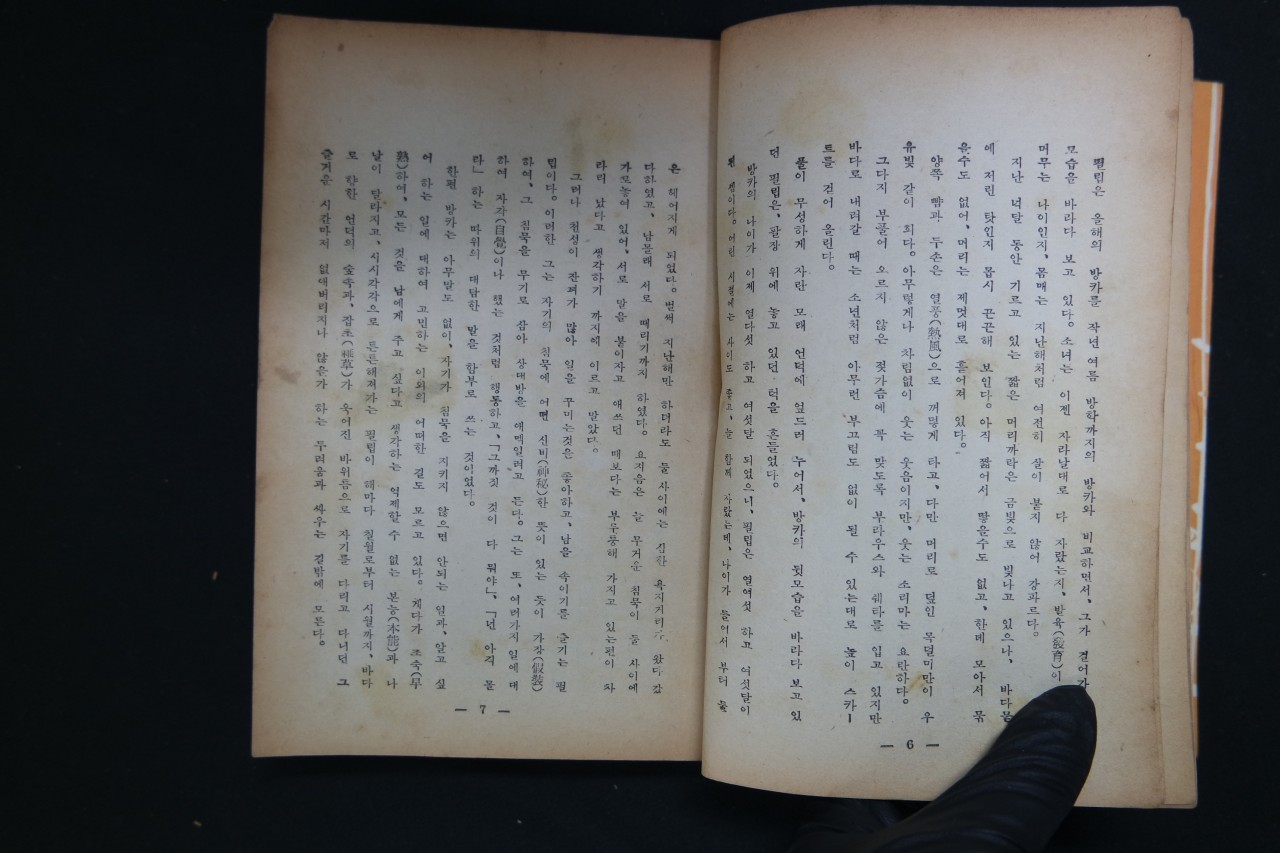 필립은 올해의 방카를 작년 여름 방학까지의 방카와 비교하면서, 그가 걸어가
모습을 바라다 보고 있다. 소녀는 이젠 자라날대로 다 자랐는지, 발육(發育)이
머무는 나이인지, 몸매는 지난해처럼 여전히 살이 붙지 않어 강파르다.
지난 넉달 동안 기르고 있는 짧은 머리까락은 금빛으로 빛나고 있으나, 바다물
에 저린 탓인지 몹시 끈끈해 보인다. 아직 짧어서 땋을수도 없고, 한데 모아서 묶
을수도 없어, 머리는 제멋대로 흩어져 있다.
양쪽 뺨과 두손은 열풍(熱風)으로 꺼멓게 타고, 다만 머리로 덮인 목덜미만이 우
유빛 같이 희다. 아무렇게나 차림없이 웃는 웃음이지만, 웃는 소리만는 요란하다.
그다지 부풀어 오르지 않은 젖가슴에 꼭 맞도록 부라우스와 쉐타를 입고 있지만
바다로 내려갈 때는 소년처럼 아무런 부끄럼도 없이 될 수 있는대로 높이 스카ー
트를 걷어 올린다.
풀이 무성하게 자란 모래 언덕에 엎드러 누어서, 방카의 뒷모습을 바라다 보고 있
던 필립은, 팔장 위에 놓고 있던 턱을 흔들었다.
방카의 나이가 이제 열다섯 하고 여섯달 되었으니, 필립은 열여섯 하고 여섯달이
된 셈이다. 어린 시절에는 사이도 좋고, 늘 함께 자랐는데, 나이가 들어서 부터 둘
— 6 —
은 헤어지게 되었다. 벌써 지난해만 하더라도 둘 사이에는 심한 욕지거리가 왔다 갔
다하였고, 남몰래 서로 때리기까지 하였다. 요지음은 늘 무거운 침묵이 둘 사이에
가로놓여 있어, 서로 말을 붙이자고 애쓰던 때보다는 부루퉁해 가지고 있는편이 차
라리 낫다고 생각하기 까지에 이르고 말았다.
그러나 천성이 잔꾀가 많아 일을 꾸미는것을 좋아하고, 남을 속이기를 즐기는 필
립이다. 이러한 그는 자기의 침묵에 어떤 신비(神秘)한 뜻이 있는 듯이 가장(假裝)
하여, 그 침묵을 무기로 삼아 상대방을 애먹일려고 든다. 그는 또, 여러가지 일에 대
하여 자각(自覺)이나 했는 것처럼 행동하고, 「그까짓 것이 다 뭐야」, 「넌 아직 몰
라」 하는 따위의 대담한 말을 함부로 쓰는 것이었다.
한편 방카는 아무말도 없이, 자기가 침묵을 지키지 않으면 안되는 일과, 알고 싶
어 하는 일에 대하여 고민하는 이외의 어떠한 길도 모르고 있다. 게다가 조숙(早
熟)하여, 모든 것을 남에게 주고 싶다고 생각하는 억제할 수 없는 본능(本能)과 나
날이 달라지고, 시시각각으로 튼튼해져가는 필립이 해마다 칠월로부터 시월까지, 바다
로 향한 언덕의 숲속과, 잡초(雜草)가 욱어진 바위틈으로 자기를 다리고 다니던 그
즐거운 시간마저 없애버리지나 않을가 하는 두려움과 싸우는 길밖에 모른다.
— 7 —